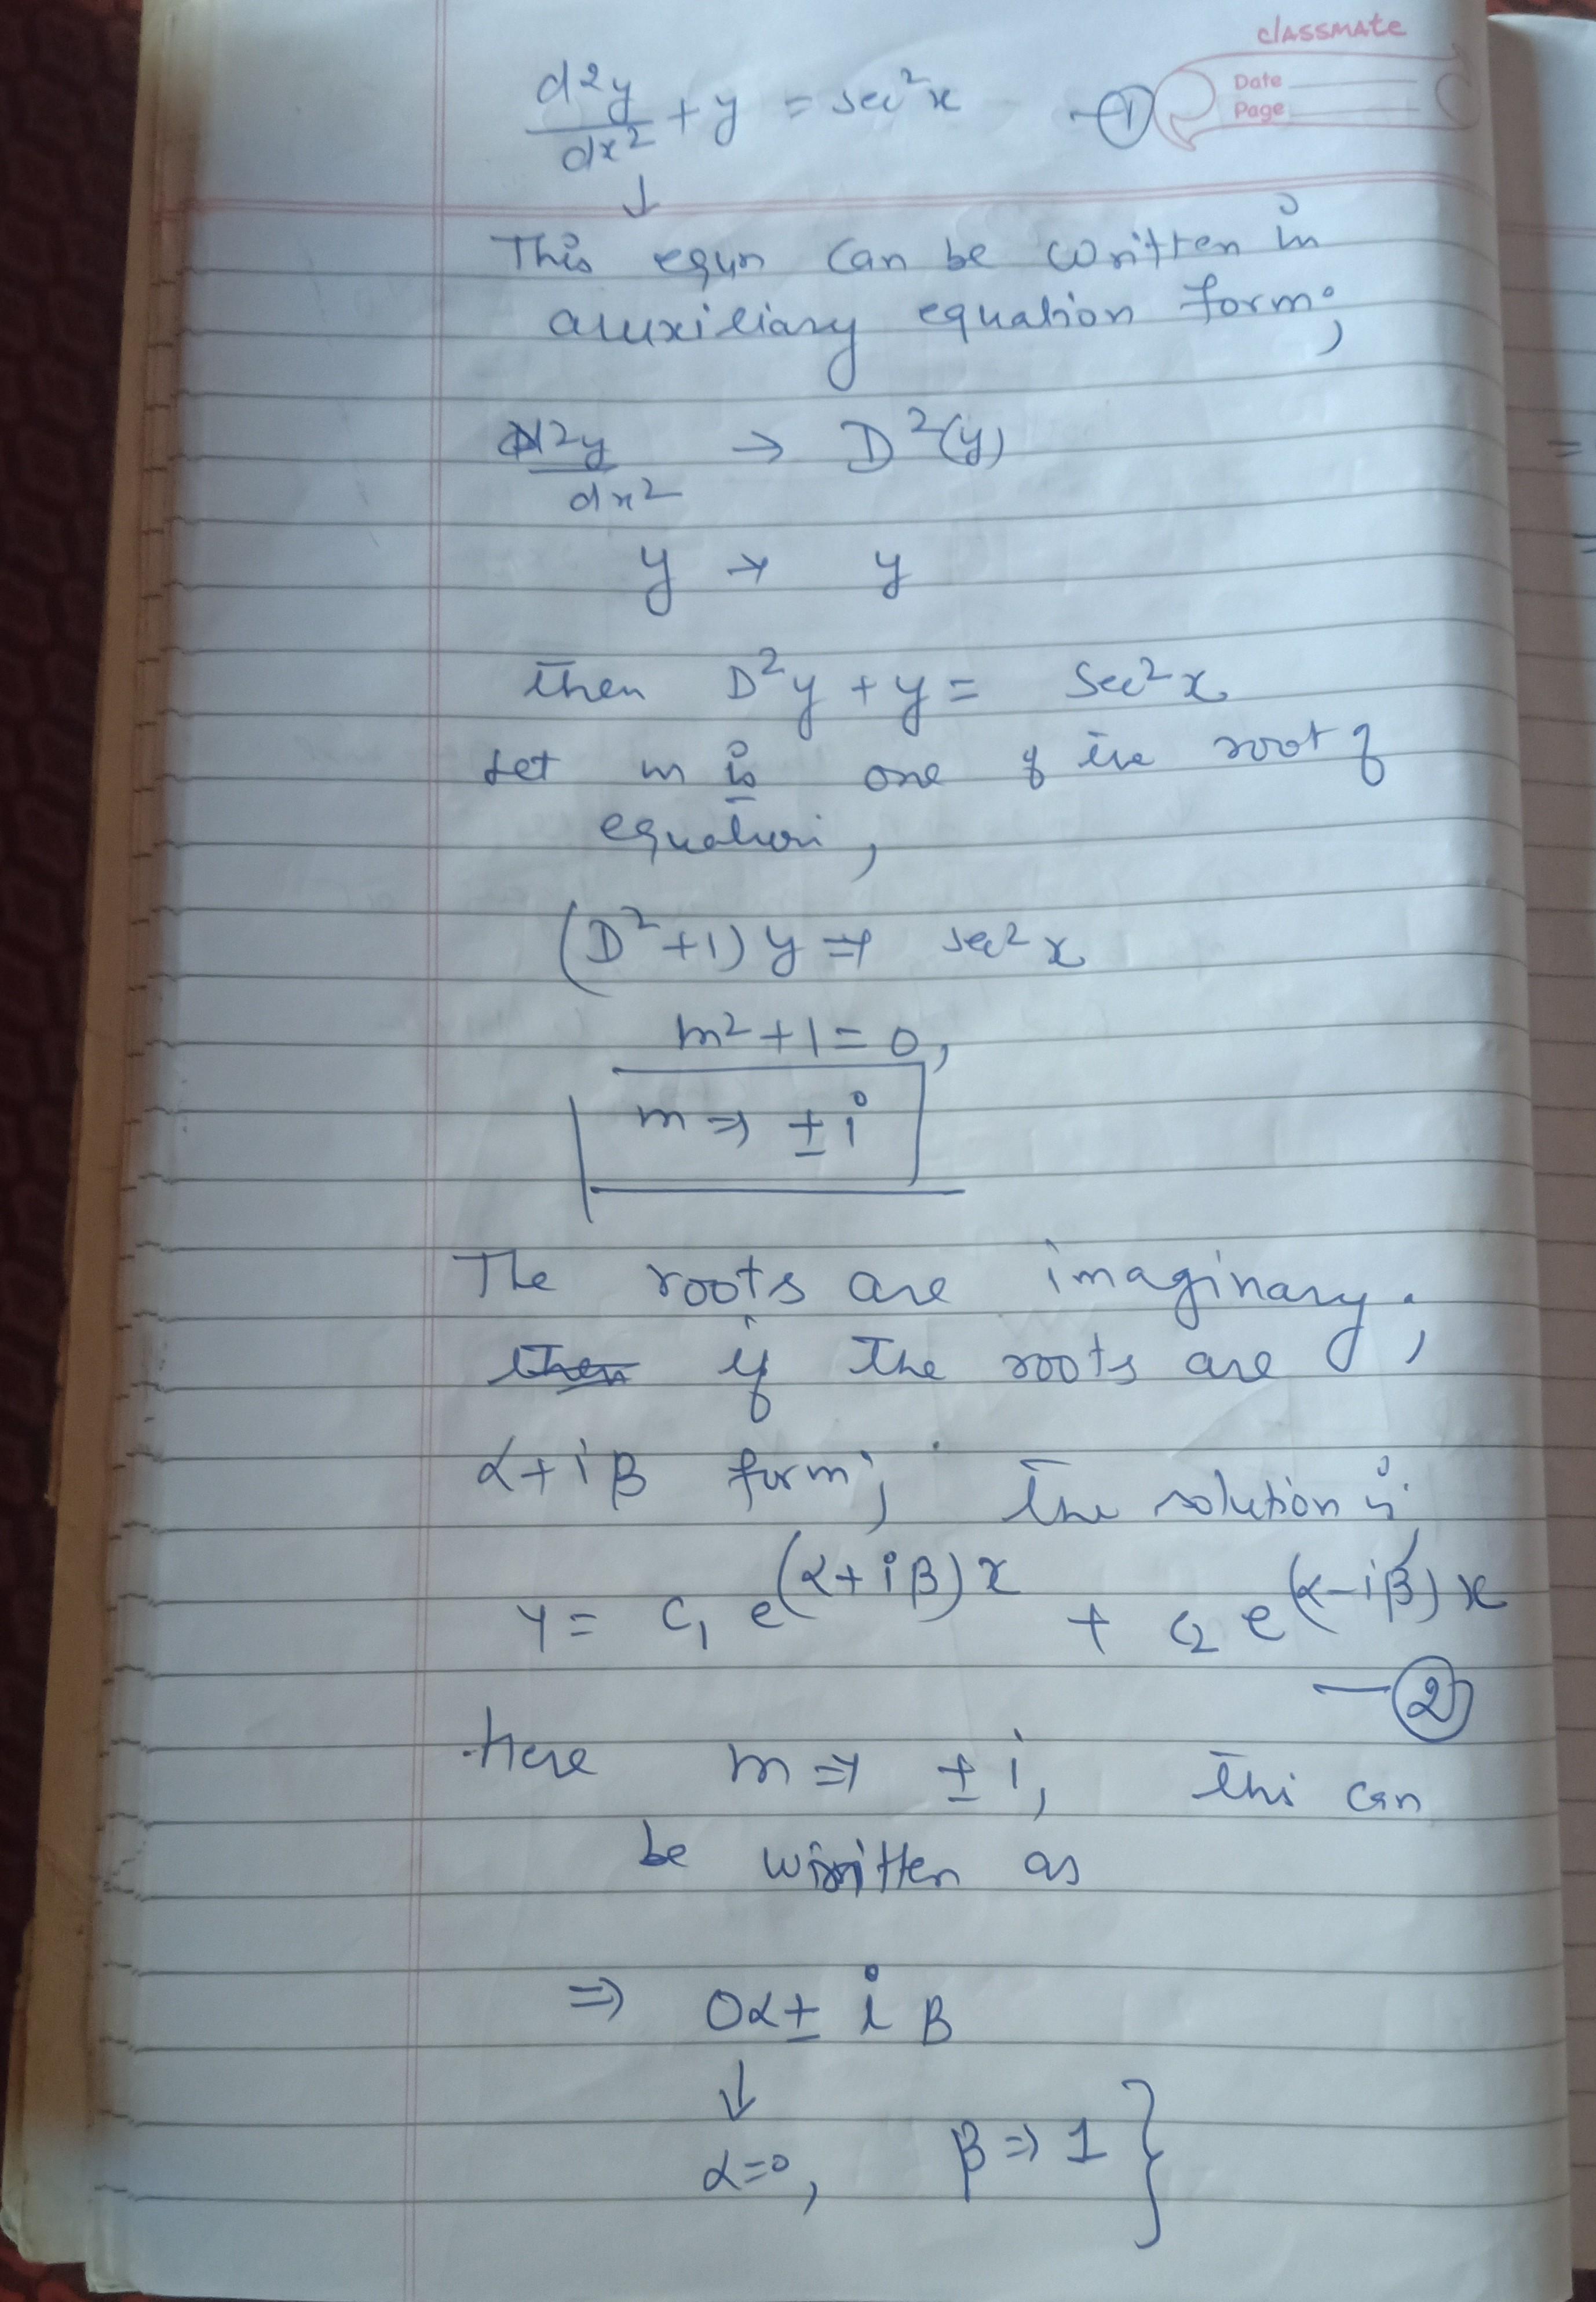 classmate
Date
Page
d²y/dx² + y = sec²x — ①
↓
This equn can be written in
auxiliary equation form;
d²y/dx² → D²(y)
y → y
then D²y + y = Sec²x
Let m is one of the root of
equation,
(D²+1) y ⇒ sec²x
m²+1=0,
m ⇒ ±i
The roots are imaginary;
then if the roots are
α+iβ form; the solution is
y = c₁ e^(α+iβ)x + c₂ e^(α-iβ)x
— ②
here m ⇒ ±i, this can
be written as
⇒ 0α ± iβ
↓
α=0, β ⇒ 1 }